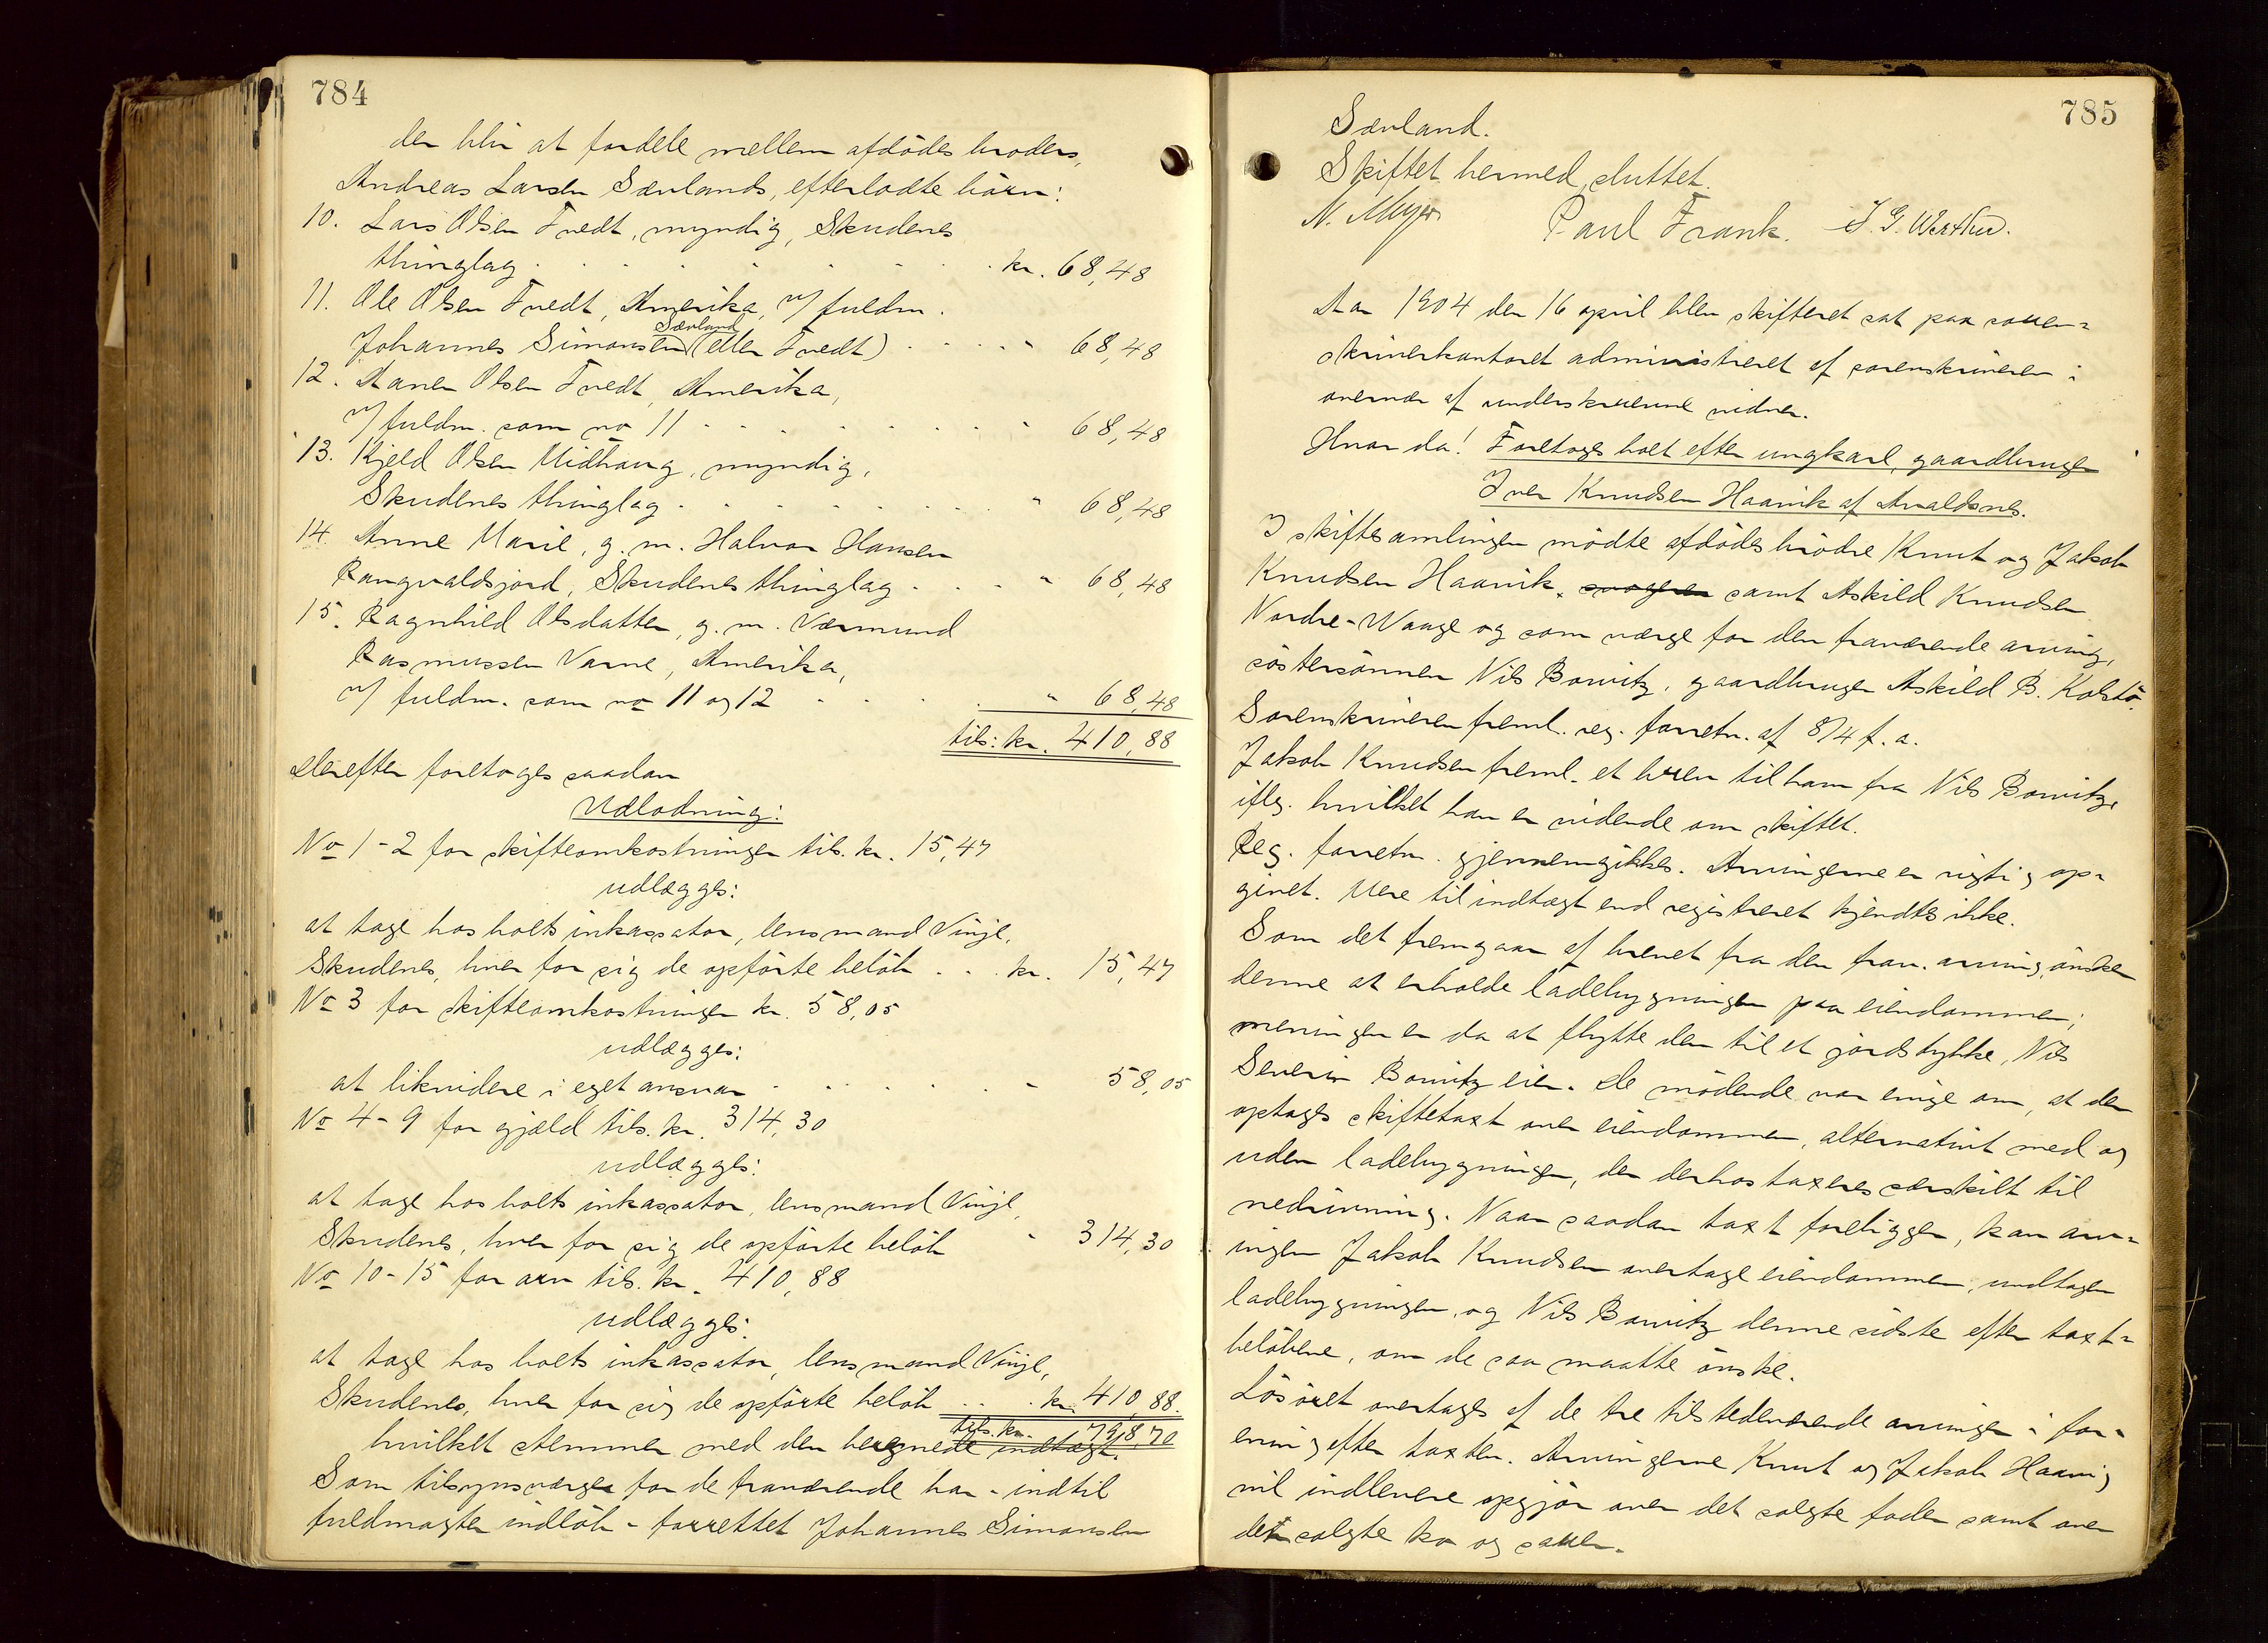 784
der blir at fordele mellem afdødes broders,
Andreas Larsen Sævlands, efterladte børn:
10. Lars Olsen Tvedt, myndig, Skudenes
thinglag . . . . . . . . kr. 68,48
11. Ole Olsen Tvedt, Amerika, v/ fuldm.
Sævland
Johannes Simonsen (eller Tvedt) . . . . " 68,48
12. Aanen Olsen Tvedt, Amerika,
v/ fuldm. som no 11 . . . . . . . . " 68,48
13. Kjeld Olsen Midhaug, myndig,
Skudenes thinglag . . . . . . . . " 68,48
14. Anne Marie, g. m. Halvor Hansen
Rangvaldsjord, Skudenes thinglag . . . " 68,48
15. Ragnhild Olsdatter, g. m. Værmund
Rasmussen Varne, Amerika,
v/ fuldm. som no 11 og 12 . . . . " 68,48
tils: kr. 410,88
Derefter foretoges saadan
Udlodning:
No 1-2 for skifteomkostninger tils. kr. 15,47
udlægges:
at tage hos boets inkassator, lensmand Vinje,
Skudenes, hver for sig de opførte beløb . . . kr. 15,47
No 3 for skifteomkostninger kr. 58,05
udlægges:
at likvidere i eget ansvar . . . . . . " 58,05
No 4-9 for gjæld tils. kr. 314,30
udlægges:
at tage hos boets inkassator, lensmand Vinje,
Skudenes, hver for sig de opførte beløb " 314,30
No 10-15 for arv tils. kr. 410,88
udlægges:
at tage hos boets inkassator, lensmand Vinje,
Skudenes, hver for sig de opførte beløb . . . kr. 410,88.
tils. kr. 798,70
hvilket stemmer med den beregnede indtægt.
Som tilsynsværge for de fraværende har - indtil
fuldmagter indløb - forrettet Johannes Simonsen
785
Sævland.
Skiftet hermed sluttet.
N. Meyer Paul Frank.
Aar 1904 den 16 april blev skifteret sat paa soren-
skriverkontoret administreret af sorenskriveren i
overvær af underskrevne vidner.
Hvor da! Foretoges boet efter ungkarl, gaardbruger
Iver Knudsen Haavik af Avaldsnes.
I skiftesamlingen mødte afdødes brødre Knut og Jakob
Knudsen Haavik, svogeren samt Askild Knudsen
Nordre-Waage og som værge for den fraværende arving,
søstersønnen Nils Bowitz, gaardbruger Askild B. Kolstø.
Sorenskriveren freml. reg. forretn. af 8/4 f. a.
Jakob Knudsen freml. et brev til ham fra Nils Bowitz,
iflg. hvilket han er vidende om skiftet.
Reg. forretn. gjennemgikkes. Arvingerne er rigtig op-
givet. Mere til indtægt end registreret kjendtes ikke.
Som det fremgaar af brevet fra den frav. arving, ønsker
denne at erholde ladebygningen paa eiendommen;
meningen er da at flytte den til et jordstykke, Nils
Severin Bowitz eier. De mødende var enige om, at der
optages skiftetaxt over eiendommen, alternativt med og
uden ladebygningen, der derhos taxeres særskilt til
nedrivning. Naar saadan taxt foreligger, kan arv-
ingen Jakob Knudsen overtage eiendommen, undtagen
ladebygningen, og Nils Bowitz denne sidste efter taxt-
beløbene, om de saa maatte ønske.
Løsøret overtages af de tre tilstedeværende arvinger i for-
ening efter taxten. Arvingerne Knut og Jakob Haavig
vil indlevere opgjør over det solgte foder samt over
den solgte ko og sauer.